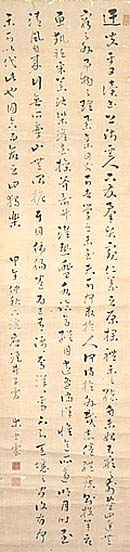 迂叟平日讀書上師聖人下友群賢窺仁義之原探禮樂之緒自未始有形之前暨四達無
窮之外事物之理舉集目前可者學之未至夫可何求於人何待於外哉志倦體疲則投竿取
魚執衽采藥決渠灌花操斧剖竹濯熱盥水臨高縱目逍遙徜徉惟意所適明月時至
清風自來行無所牽止無所柅耳目肺腸卷為己有踽踽焉洋洋焉不知天壤之間復有何
樂可以代此也因合而命之曰獨樂
甲午仲秋